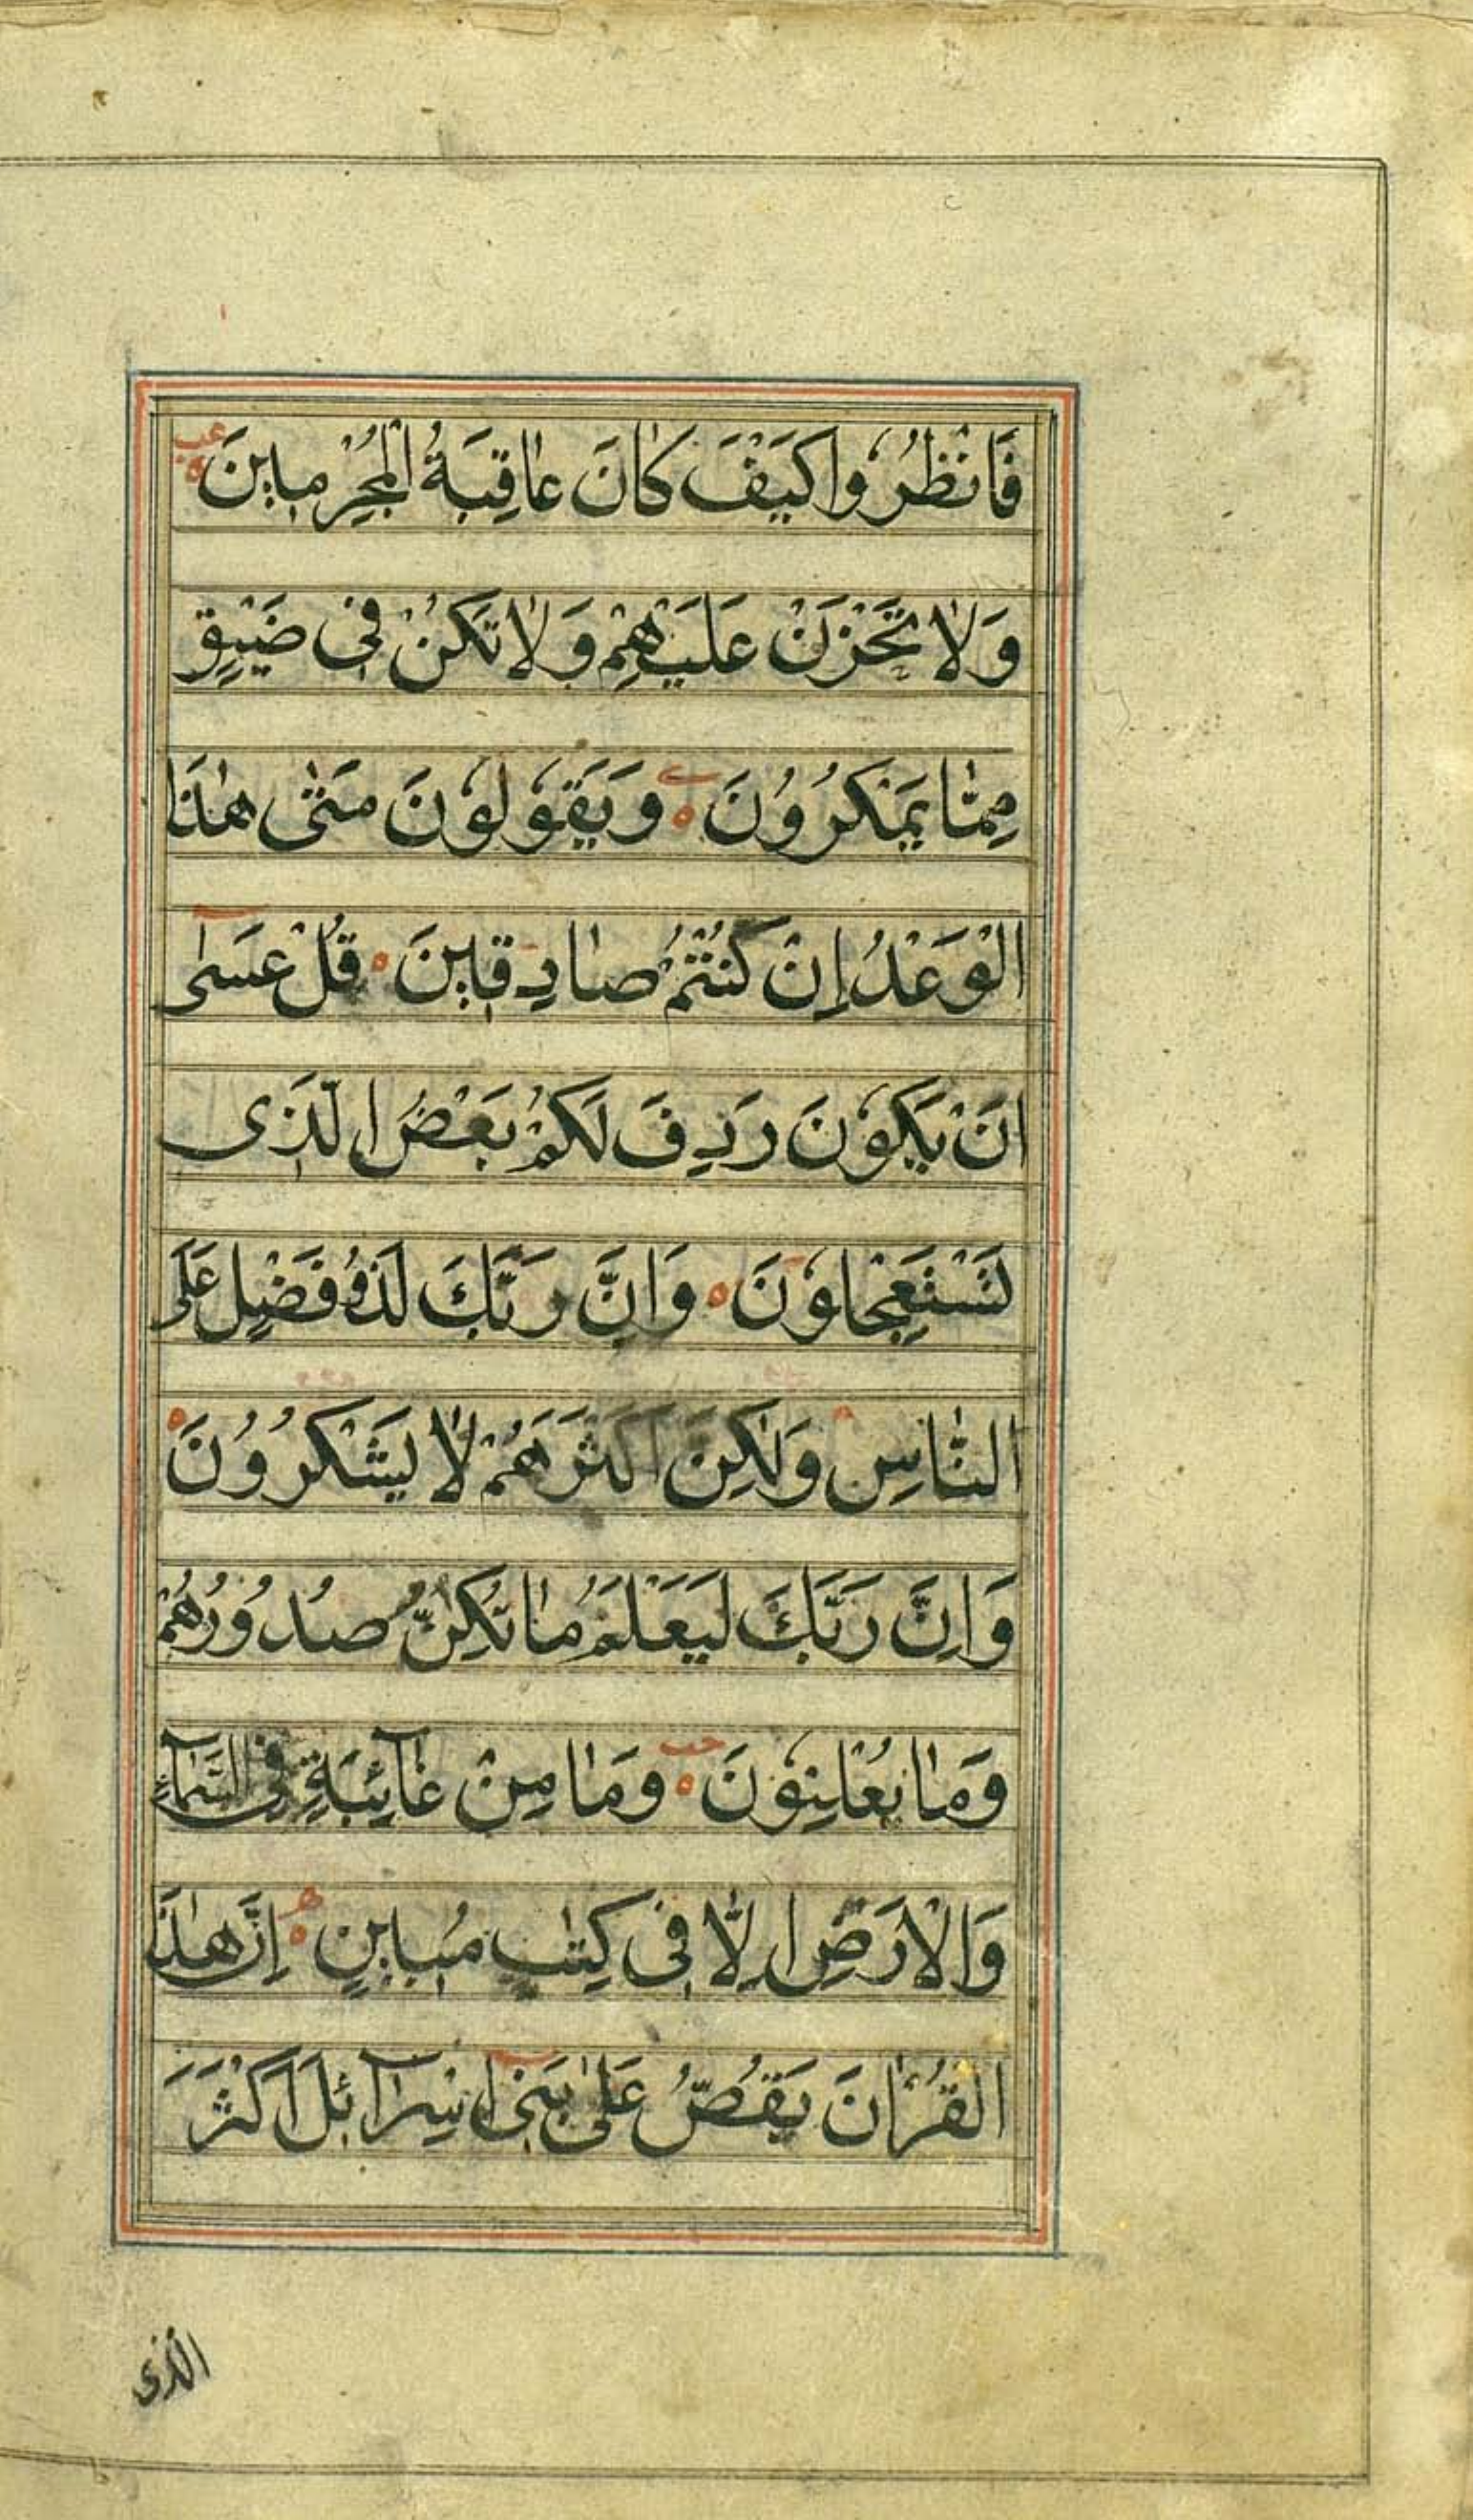 فَانْظُرُوا كَيْفَ كَانَ عَاقِبَةُ الْمُجْرِمِينَ
وَلَا تَحْزَنْ عَلَيْهِمْ وَلَا تَكُنْ فِي ضَيْقٍ
مِمَّا يَمْكُرُونَ ه وَيَقُولُونَ مَتَى هٰذَا
الْوَعْدُ إِنْ كُنْتُمْ صَادِقِينَ ه قُلْ عَسٰى
اَنْ يَكُونَ رَدِفَ لَكُمْ بَعْضُ الَّذِى
تَسْتَعْجِلُونَ ه وَاِنَّ رَبَّكَ لَذُو فَضْلٍ عَلَى
النَّاسِ وَلٰكِنَّ اَكْثَرَهُمْ لَا يَشْكُرُونَ ه
وَاِنَّ رَبَّكَ لَيَعْلَمُ مَا تُكِنُّ صُدُورُهُمْ
وَمَا يُعْلِنُونَ ه وَمَا مِنْ غَآئِبَةٍ فِى السَّمَآءِ
وَالْاَرْضِ اِلَّا فِى كِتٰبٍ مُبِينٍ ه اِنَّ هٰذَا
الْقُرْاٰنَ يَقُصُّ عَلٰى بَنِى اِسْرَآئِلَ اَكْثَرَ
الذى